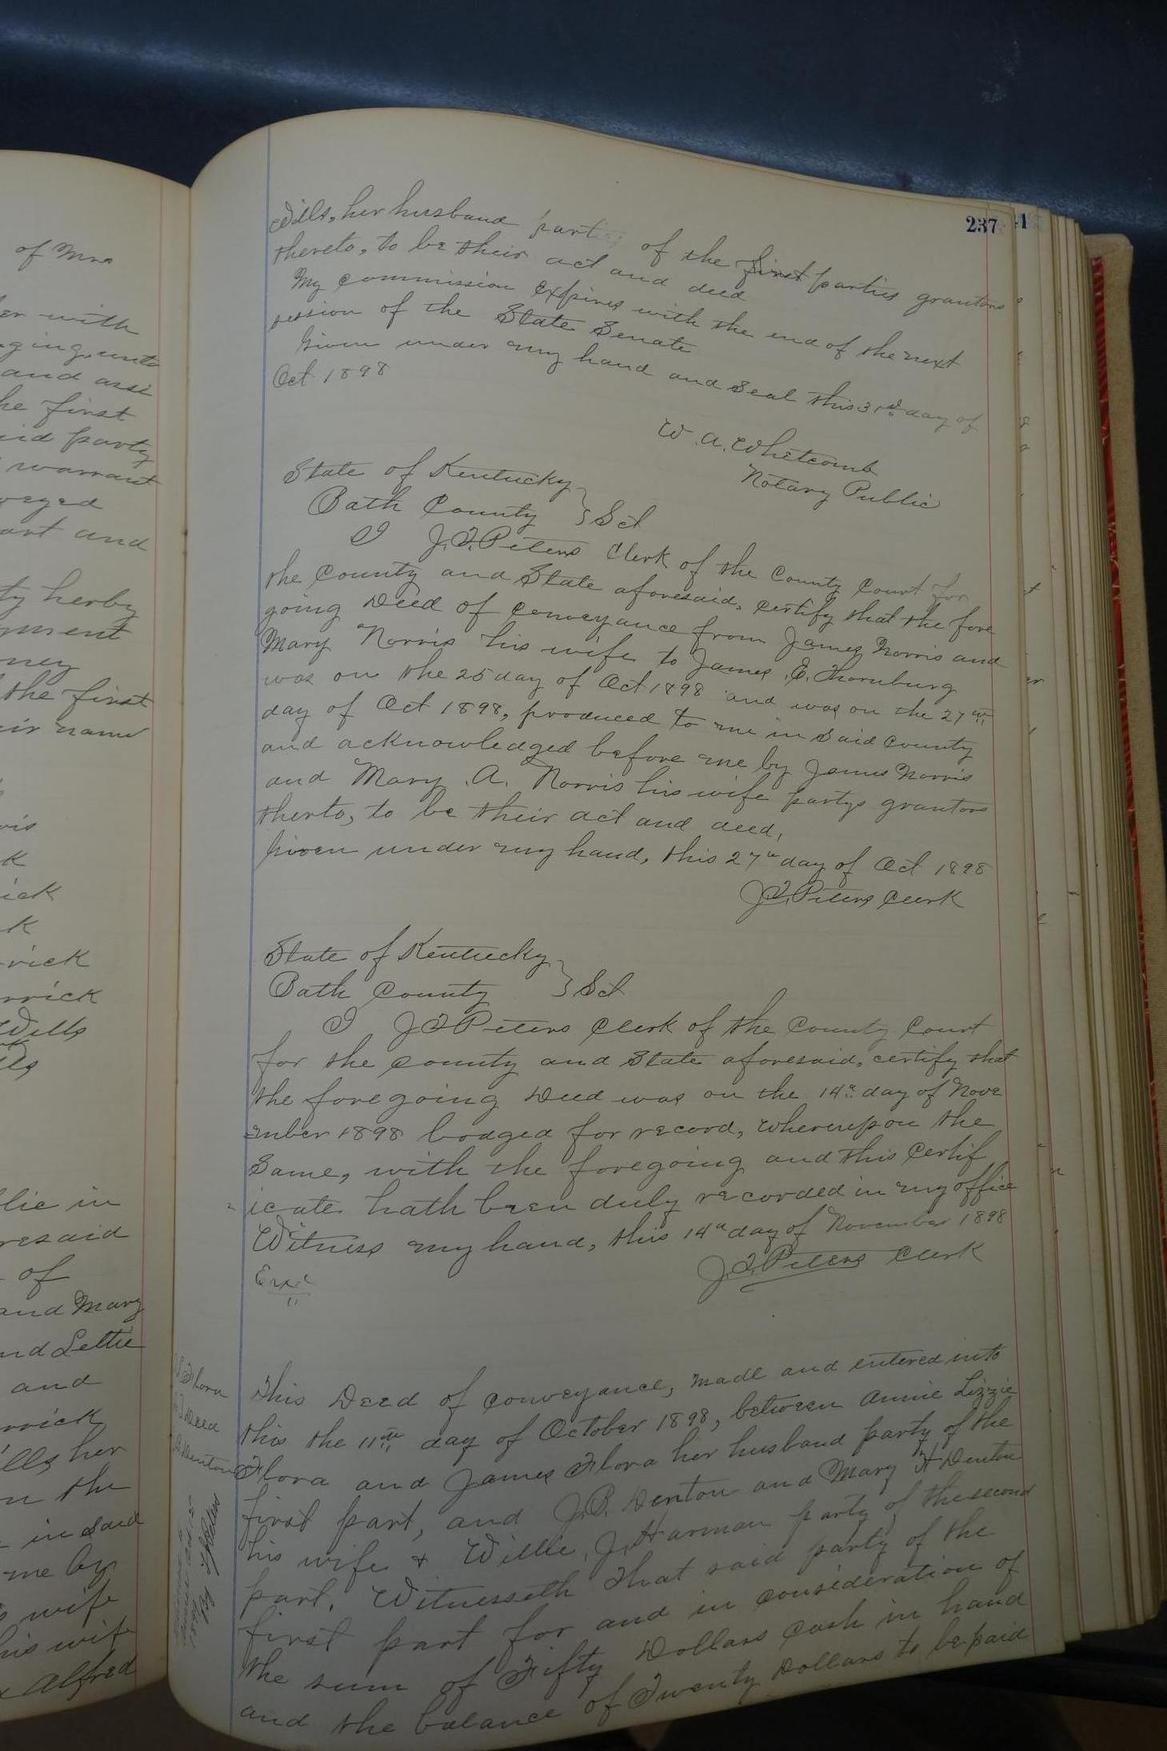 of Mrs
er with
ging, unto
and assi
he first
aid party
warrant
veyed
art and
ty herby
ment
ney
the first
eir name
vis
k
ick
k
rick
rrick
Wills
lls
lic in
resaid
of
and Mary
nd Lettie
and
rrick
ills her
n the
in said
me by
wife
his wife
Alfred
237
Wills, her husband part of the first parties grantors
thereto, to be their act and deed
My commission expires with the end of the next
session of the State Senate
Given under my hand and Seal this 31st day of
Oct 1898
W. A. Whetcomb
Notary Public
State of Kentucky
Bath County } Sct
I J. T. Peters Clerk of the County Court for
the County and State aforesaid, certify that the fore
going Deed of conveyance from James Norris and
Mary Norris his wife to James E. Thornburg
was on the 25 day of Oct 1898 and was on the 27th
day of Oct 1898, produced to me in said County
and acknowledged before me by James Norris
and Mary A. Norris his wife partys grantors
therto, to be their act and deed,
Given under my hand, this 27th day of Oct 1898
J. T. Peters Clerk
State of Kentucky
Bath County } Sct
I J T Peters Clerk of the County Court
for the county and State aforesaid, certify that
the foregoing Deed was on the 14th day of Nove
ember 1898 lodged for record, whereupon the
Same, with the foregoing and this Certif
icate hath been duly recorded in my office
Witness my hand, this 14th day of November 1898
J. T. Peters Clerk
This Deed of conveyance, made and entered into
this the 11th day of October 1898, between Annie Lizzie
Flora and James Flora her husband party of the
first part, and J. P. Denton and Mary H Denton
his wife & Willie J. Harman party of the second
part, Witnesseth That said party of the
first part for and in consideration of
the sum of Fifty Dollars Cash in hand
and the balance of Twenty Dollars to be paid
Flora
Deed
Denton